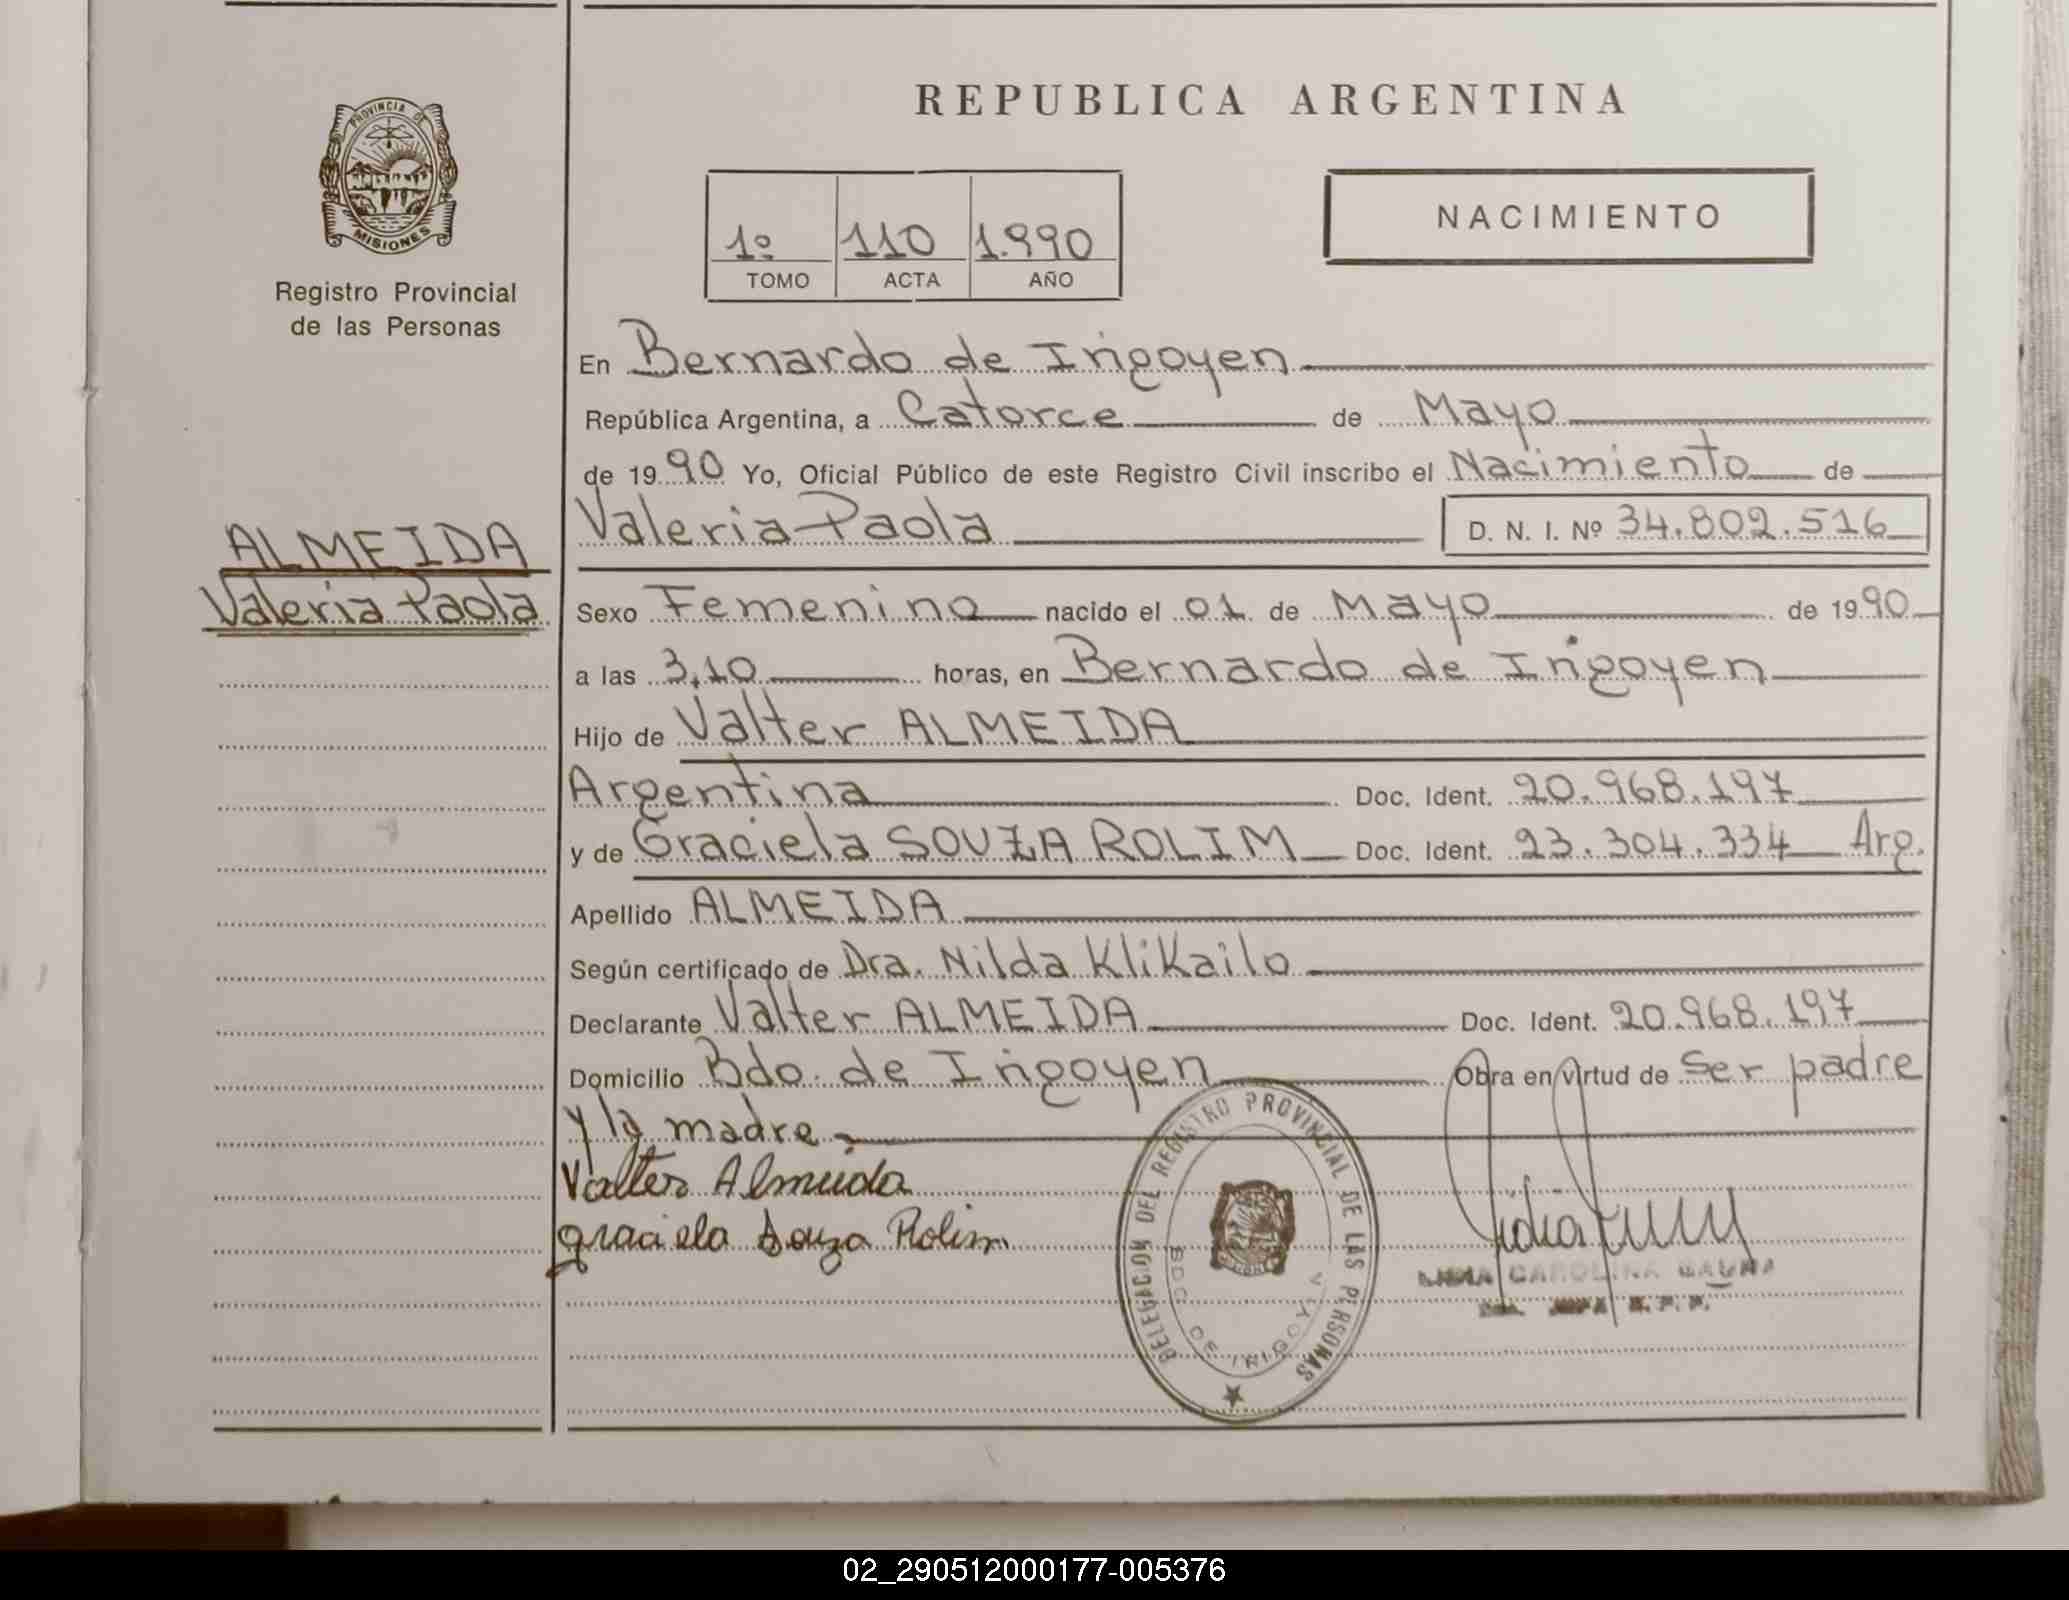 REPUBLICA ARGENTINA
PROVINCIA DE
MISIONES
Registro Provincial
de las Personas
1º 110 1.990
TOMO ACTA AÑO
NACIMIENTO
En Bernardo de Irigoyen
República Argentina, a Catorce de Mayo
de 1990 Yo, Oficial Público de este Registro Civil inscribo el Nacimiento de
Valeria Paola D. N. I. Nº 34.802.516
ALMEIDA
Valeria Paola
Sexo Femenino nacido el 01 de Mayo de 1990
a las 3,10 horas, en Bernardo de Irigoyen
Hijo de Valter ALMEIDA
Argentina Doc. Ident. 20.968.197
y de Graciela SOUZA ROLIM Doc. Ident. 23.304.334 Arg.
Apellido ALMEIDA
Según certificado de Dra. Nilda Klikailo
Declarante Valter ALMEIDA Doc. Ident. 20.968.197
Domicilio Bdo. de Irigoyen Obra en virtud de ser padre
y la madre
Valter Almeida
graciela Souza Rolim
DELEGACION DEL REGISTRO PROVINCIAL DE LAS PERSONAS
BDO. DE IRIGOYEN
CAROLINA
02_290512000177-005376